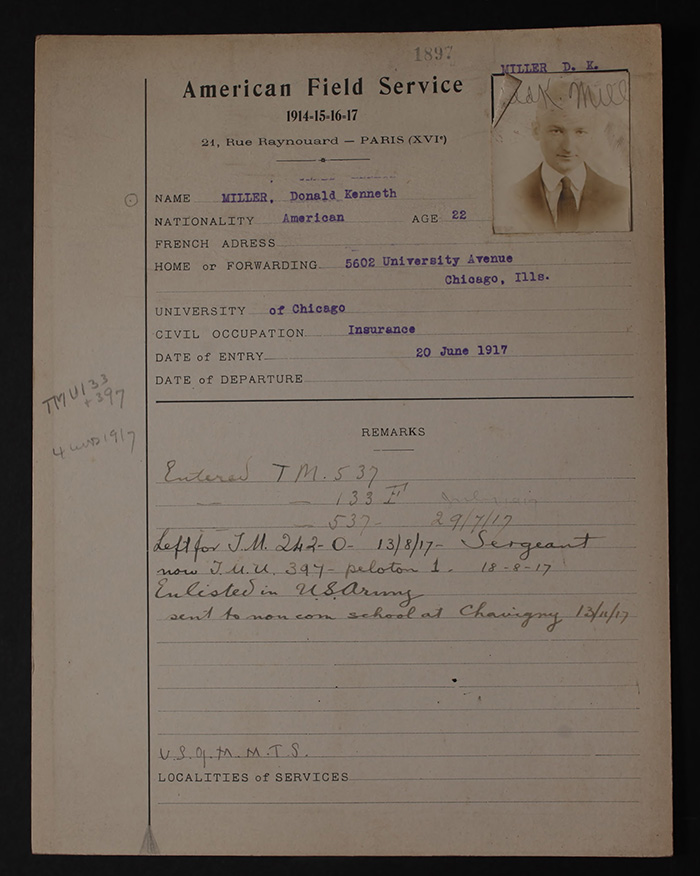 1897
MILLER D. K.
American Field Service
1914-15-16-17
21, Rue Raynouard — PARIS (XVIe)
NAME MILLER, Donald Kenneth
NATIONALITY American AGE 22
FRENCH ADRESS
HOME or FORWARDING 5602 University Avenue
Chicago, Ills.
UNIVERSITY of Chicago
CIVIL OCCUPATION Insurance
DATE of ENTRY 20 June 1917
DATE of DEPARTURE
TMU 133
+ 397
1917
REMARKS
Entered T M. 537
— — 133 F
— 537- 29/7/17
Left for T.M. 242-O- 13/8/17- Sergeant
now T.M.U. 397- peloton 1. 18-8-17
Enlisted in U.S. Army
sent to non com school at Chavigny 13/11/17
U.S.Q.M.M.T.S.
LOCALITIES of SERVICES